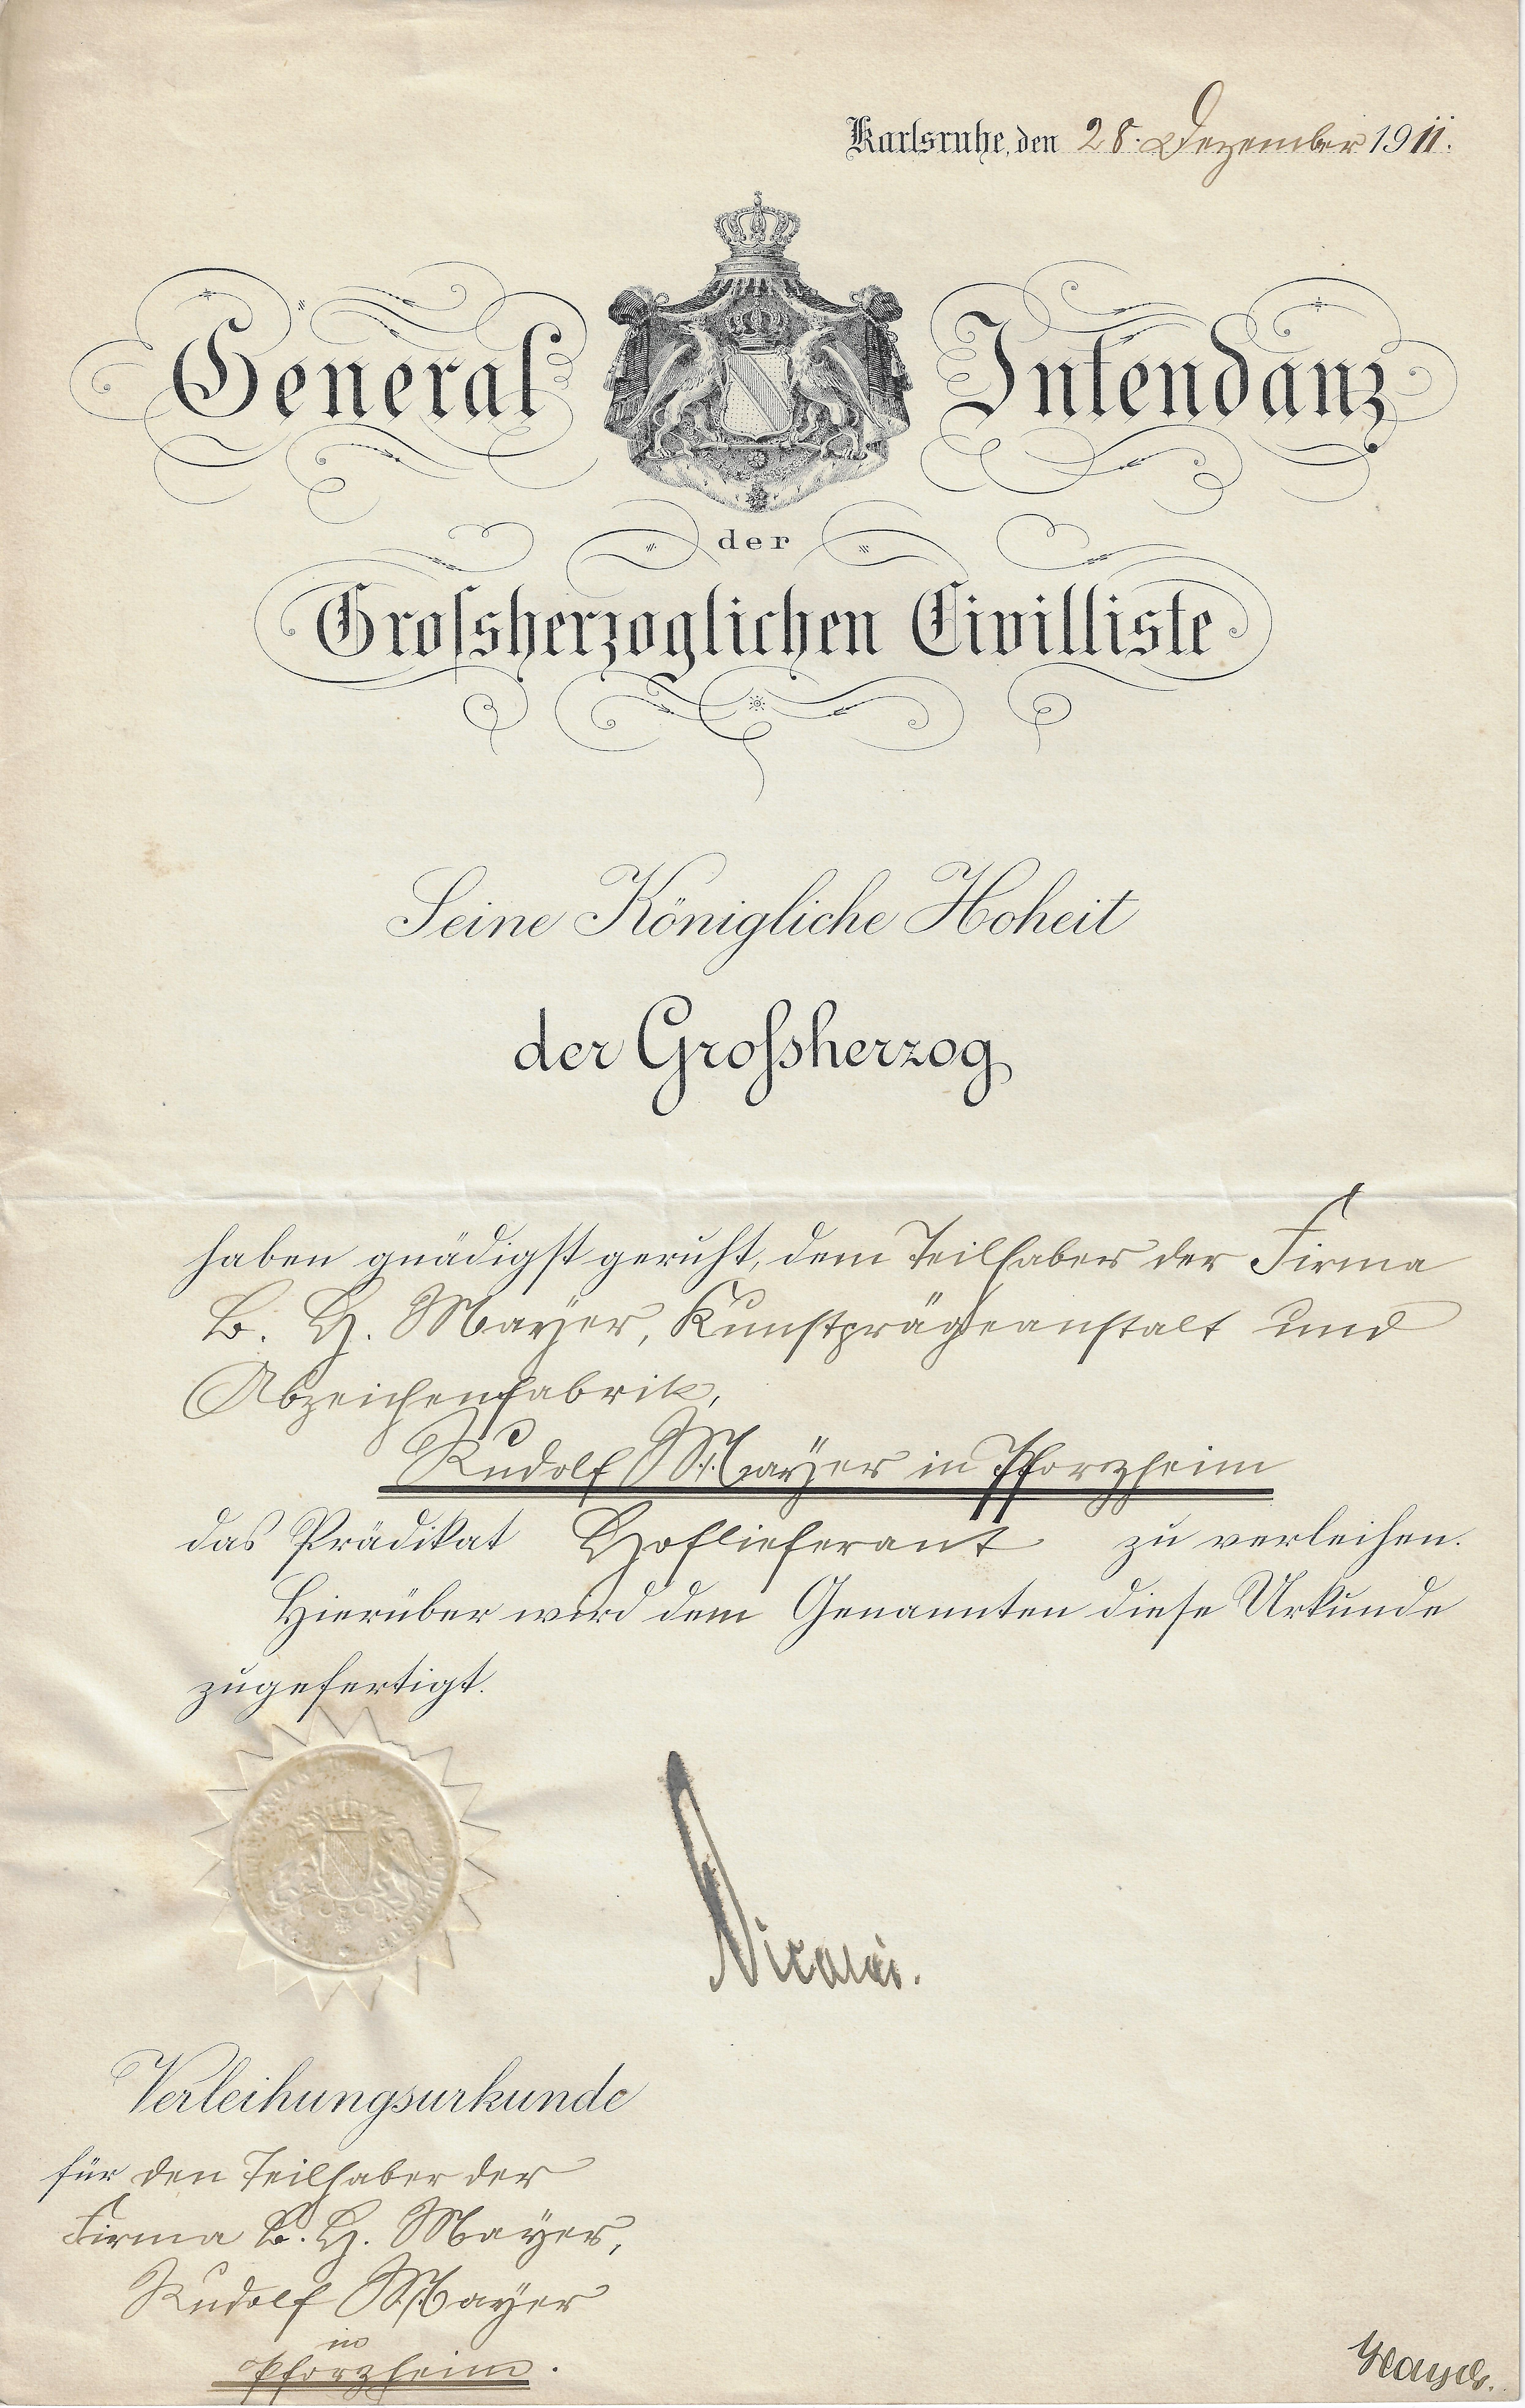 Karlsruhe, den 28. Dezember 1911.
General Intendanz
der
Grossherzoglichen Civilliste
Seine Königliche Hoheit
der Grossherzog
haben gnädigst geruht, dem Teilhaber der Firma
B. H. Mayer, Kunstprägeanstalt und
Abzeichenfabrik,
Rudolf Mayer in Pforzheim
das Prädikat Hoflieferant zu verleihen.
Hierüber wird dem Genannten diese Urkunde
zugefertigt.
Nicolai.
Verleihungsurkunde
für den Teilhaber der
Firma B. H. Mayer,
Rudolf Mayer
in
Pforzheim.